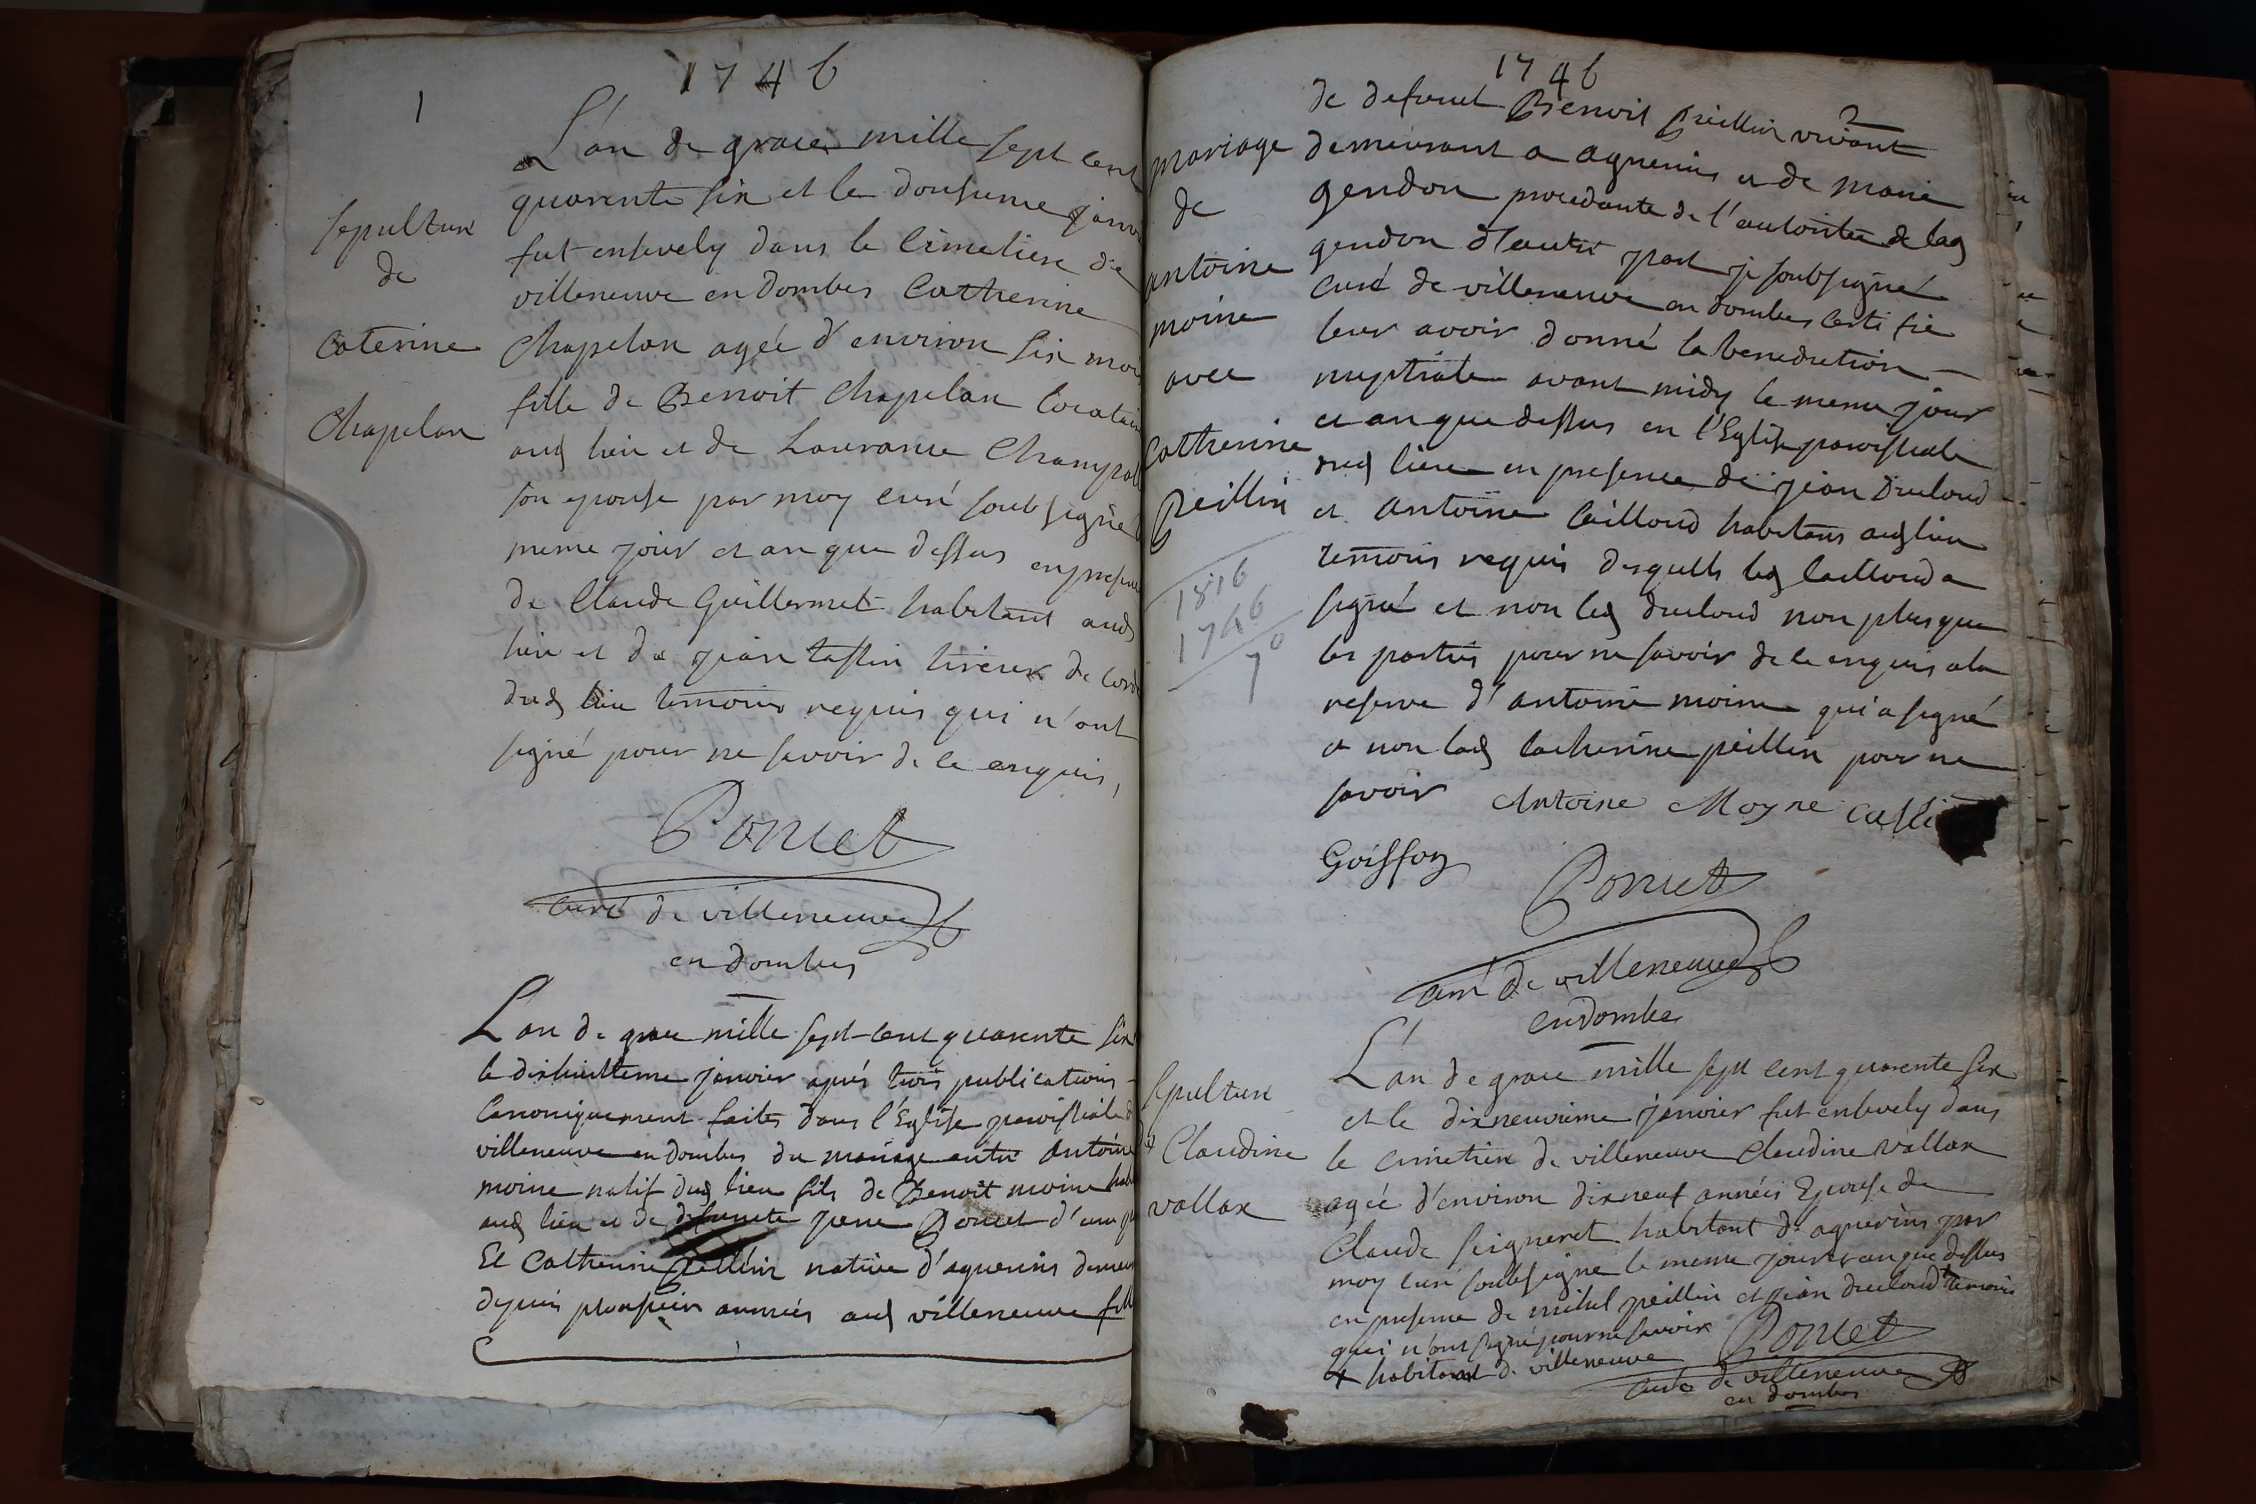 1746
1
L'an de grace mille sept cent
quarente six et le dousieme janvi
fut ensevely dans le cimetiere de
villeneuve en dombes Catherine
Chapelan agée d'environ six mois
fille de Benoit Chapelan locatair
aud lieu et de Laurance Champal
son epouse par moy curé soubsigné
meme jour et an que dessus en presence
de Claude Guillermet habitant aud
lieu et de jean tassin tireur de cord
dud lieu temoins requis qui n'ont
signé pour ne savoir de ce enquis,
sepulture
de
Caterine
Chapelan
Poncet
curé de villeneuve
en dombes
L'an de grace mille sept cent quarente six
le dixhuittieme janvier aprés trois publications
Canoniquement faites dans l'Eglise paroissiale d
villeneuve en dombes du mariage entre Antoine
moine natif dud lieu fils de Benoit moine hab
aud lieu et de defuncte jene Poncet d'une p
Et Catherine Peillin native d'agnerins demeu
depuis plusieurs années aud villeneuve fille
1746
2
de defunct Benoit Peillin vivant
demeurant a agnerins et de marie
gendon procedante de l'autorité de lad
gendon d'autre part je soubsigné
curé de villeneuve en dombes certifie
leur avoir donné la benediction
nuptiale avant midy le meme jour
et an que dessus en l'Eglise paroissiale
dud lieu en presence de jean ducloud
et antoine cailloud habitans aud lieu
temoins requis desquels led cailloud a
signé et non led ducloud non plus que
les parties pour ne savoir de ce enquis a la
reserve d'antoine moine qui a signé
et non lad catherine peillin pour ne
savoir Antoine Moyne
Goiffon
mariage
de
antoine
moine
avec
Catherine
Peillin
1816
1746
70
Poncet
curé de villeneuve
en dombes
L'an de grace mille sept cent quarente six
et le dixneuvieme janvier fut ensevely dans
le cimetiere de villeneuve Claudine vallax
agée d'environ dixneuf années Epouse de
Claude seigneret habitant d'agnerins par
moy curé soubsigné le meme jour et an que dessus
en presence de michel peillin et jean ducloud + temoins
qui n'ont signé pour ne savoir
+ habitant de villeneuve
sepulture
d Claudine
vallax
Poncet
curé de villeneuve
en dombes